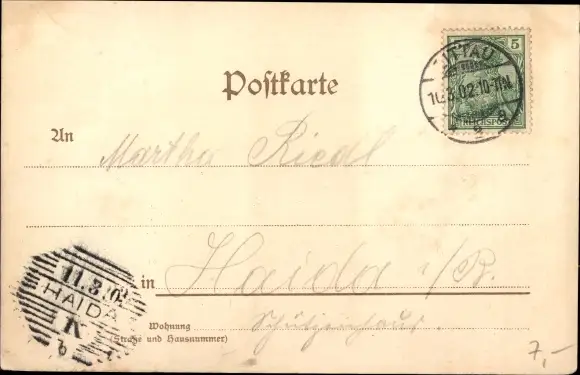 5
ZITTAU
10.3.02.10-11N.
8
REICHSPOST
Postkarte
An
Martha Riedl
11.3.0
HAIDA
in Haida i/B.
Wohnung
(Straße und Hausnummer)
Schützenhaus.
7,-